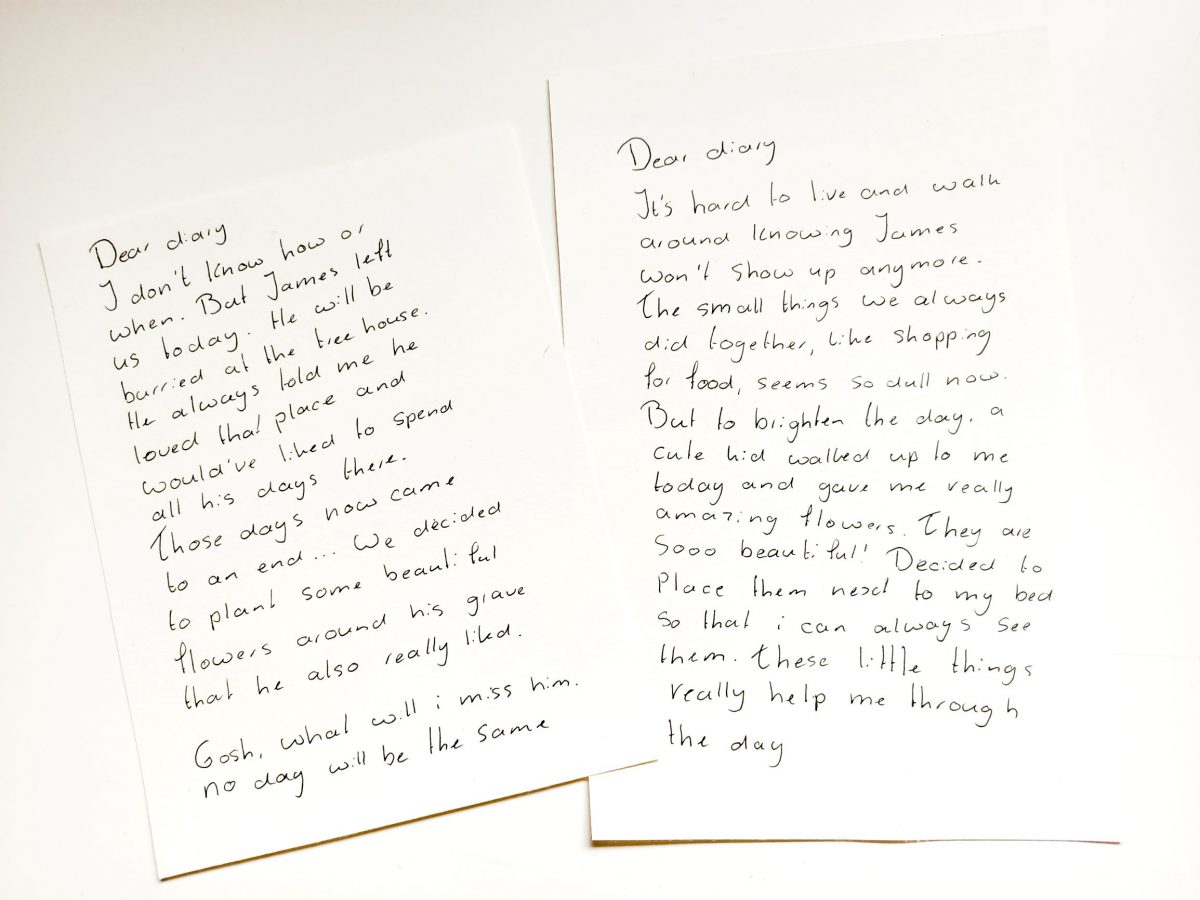 Dear diary
I don't know how or
when. But James left
us today. He will be
burried at the tree house.
He always told me he
loved that place and
would've liked to spend
all his days there.
Those days now came
to an end... We decided
to plant some beautiful
flowers around his grave
that he also really liked.
Gosh, what will i miss him.
no day will be the same
Dear diary
It's hard to live and walk
around knowing James
won't show up anymore.
The small things we always
did together, like shopping
for food, seems so dull now.
But to brighten the day, a
cute kid walked up to me
today and gave me really
amazing flowers. They are
Sooo beautiful! Decided to
Place them next to my bed
so that i can always see
them. These little things
really help me through
the day